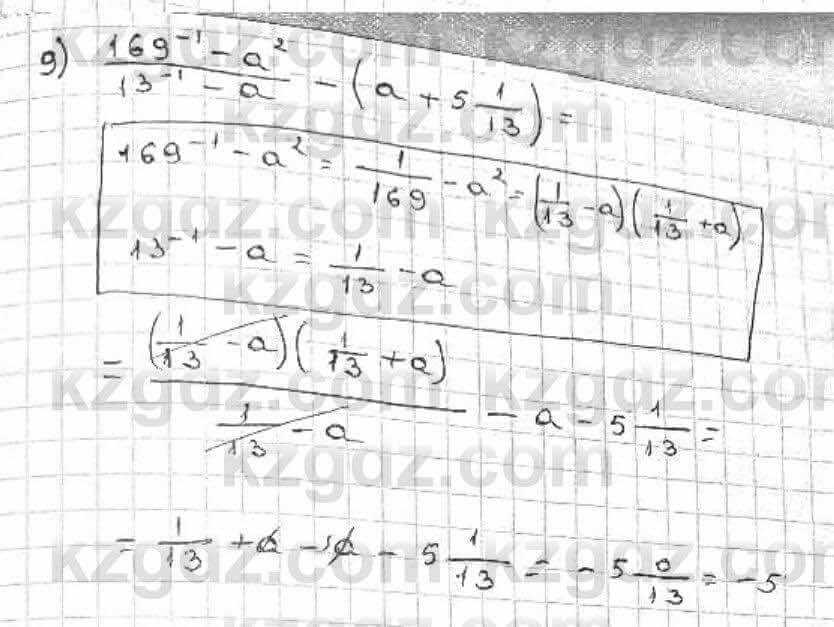 9) (169⁻¹ - a²)/(13⁻¹ - a) - (a + 5 1/13) =
169⁻¹ - a² = 1/169 - a² = (1/13 - a)(1/13 + a)
13⁻¹ - a = 1/13 - a
= ((1/13 - a)(1/13 + a))/(1/13 - a) - a - 5 1/13 =
= 1/13 + a - a - 5 1/13 = - 5 0/13 = - 5
kzgdz.com